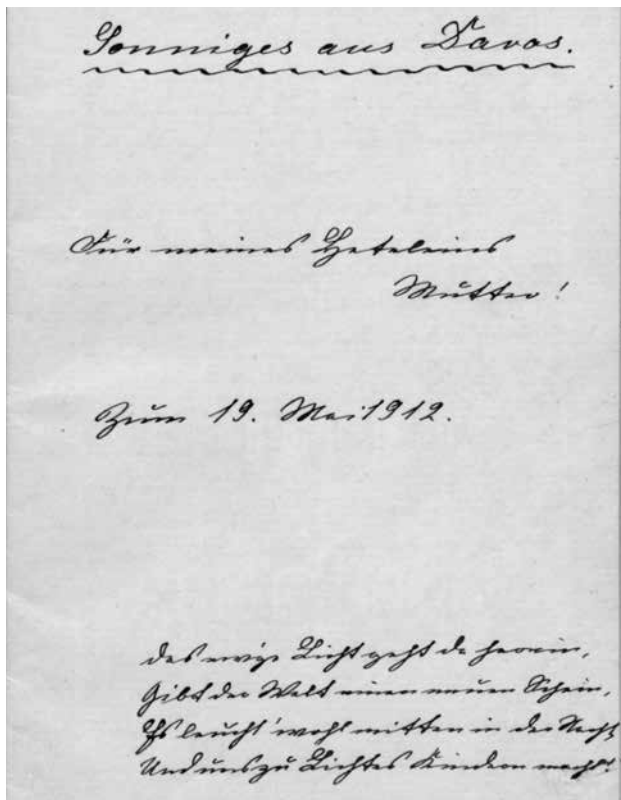 Sonniges aus Davos.
Für meines Heteleins
Mutter!
Zum 19. Mai 1912.
Das ewige Licht geht da herein,
Gibt der Welt einen neuen Schein,
Es leucht' wohl mitten in der Nacht
Und uns zu Lichtes Kindern macht!